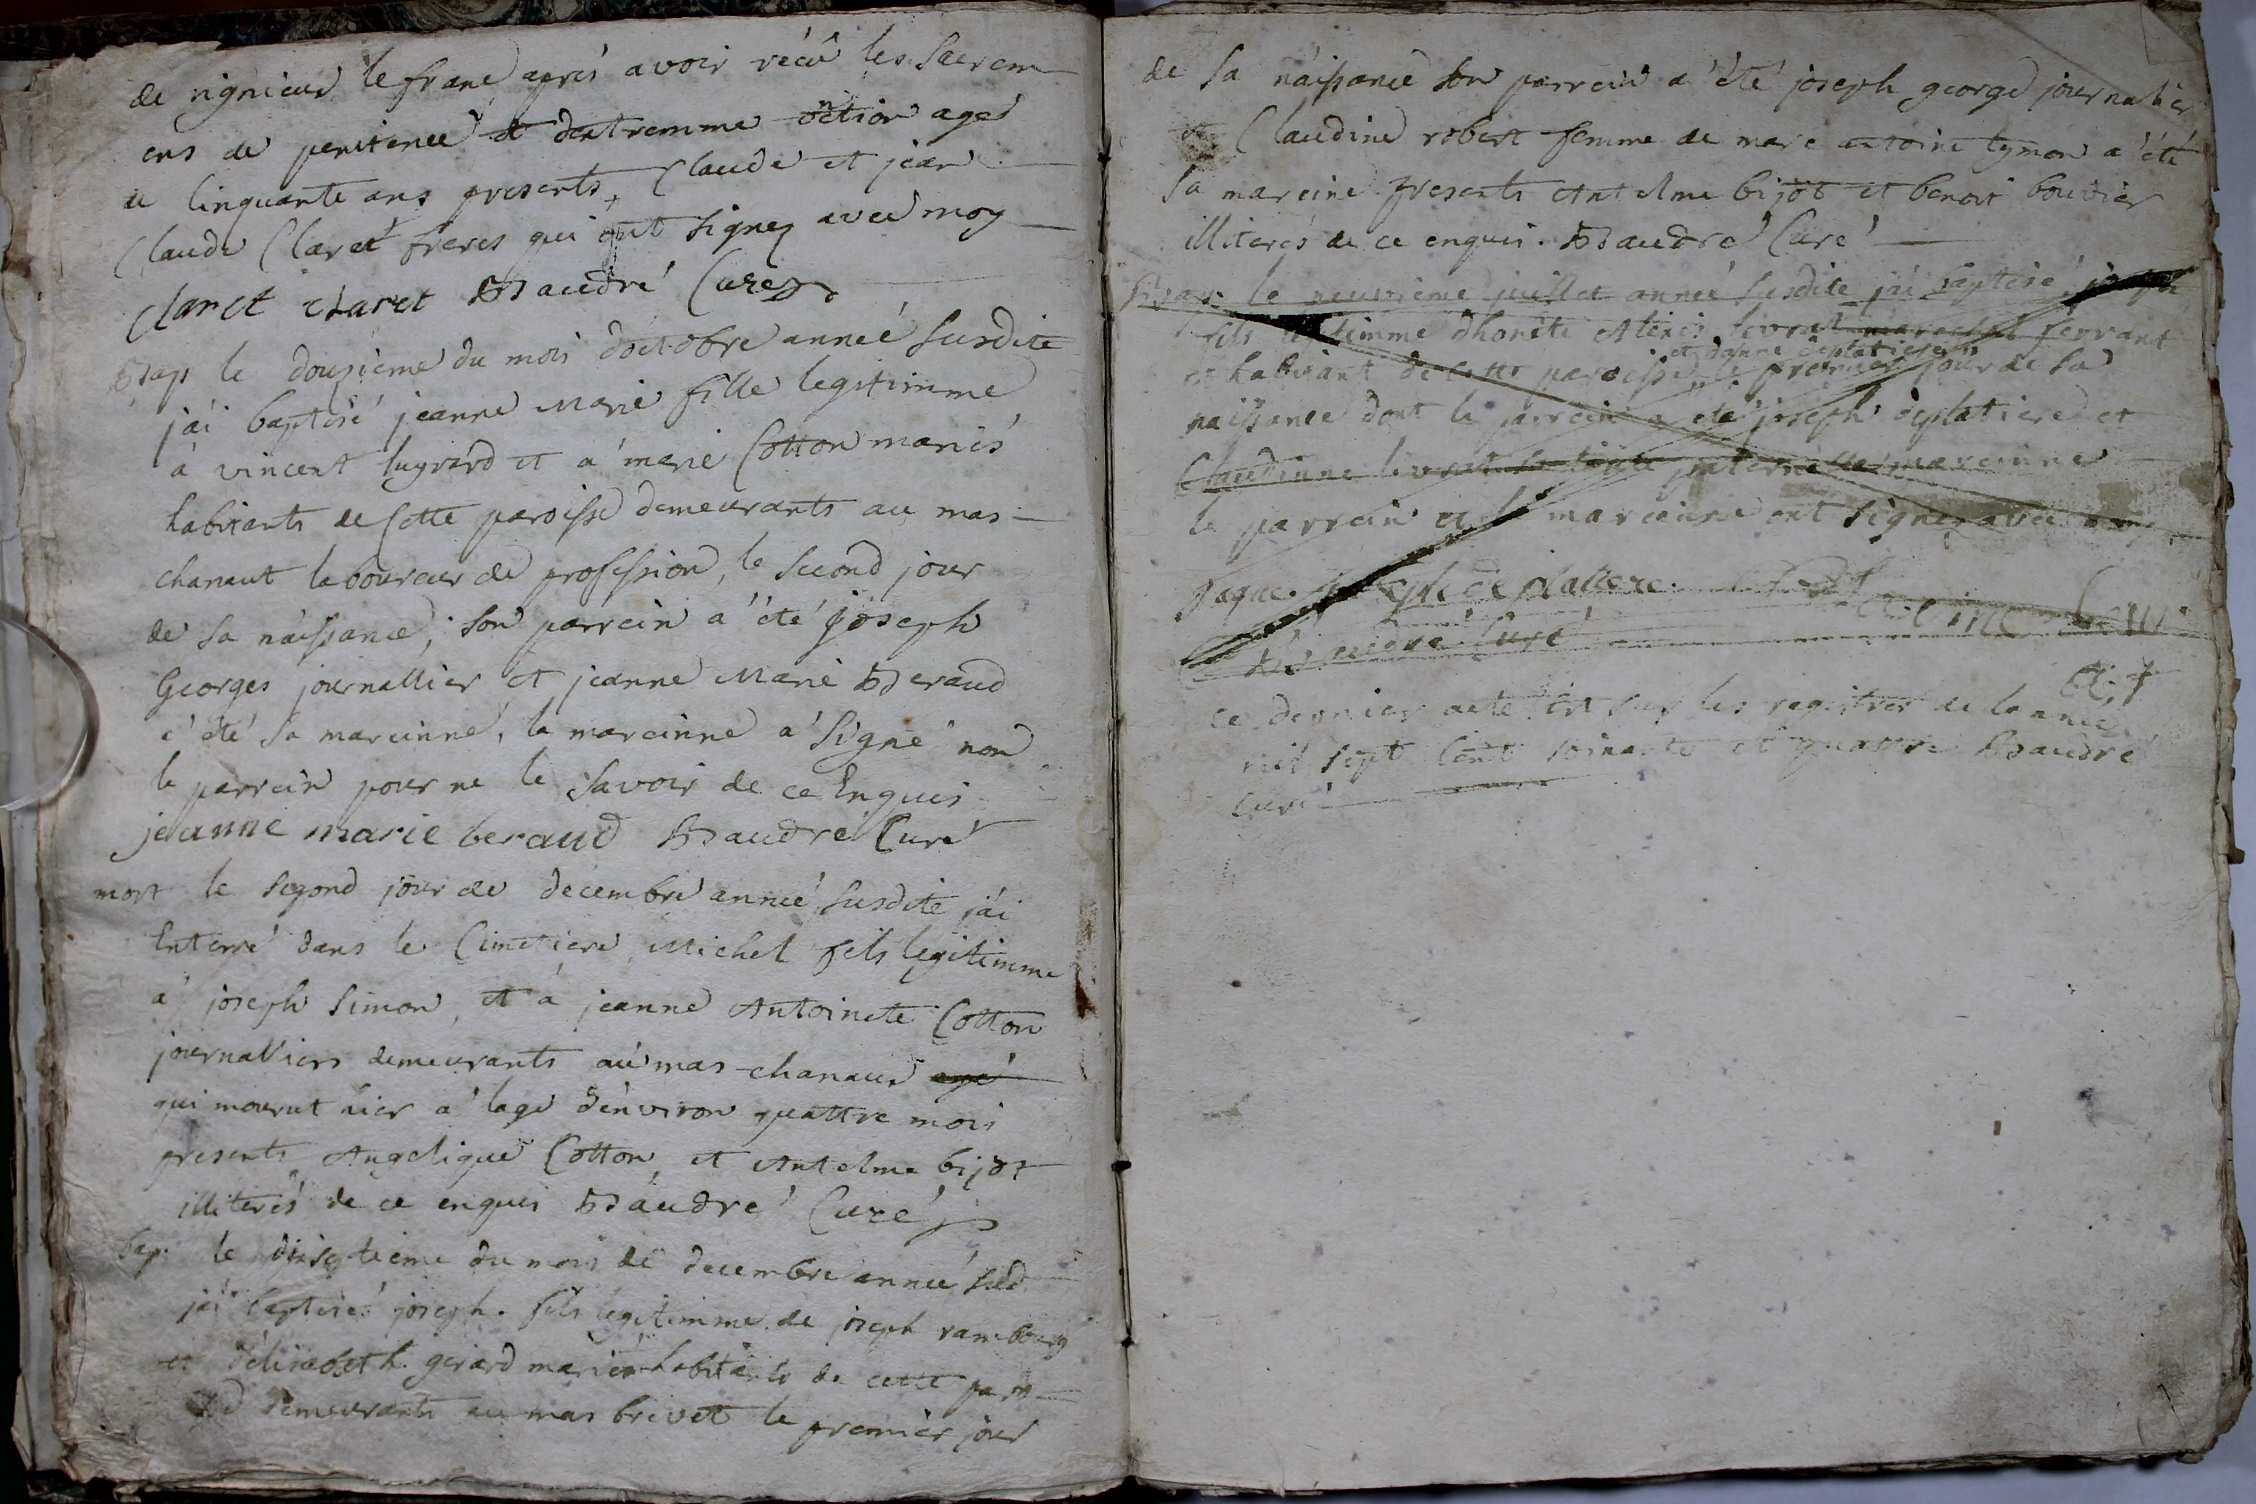 de rignieux le franc aprés avoir récû les Sacrem
ens de penitence et dextremme onction agé
de Cinquante ans presents, Claude et jean
Claude Claret freres qui ont signez avec moy
Claret claret Baudré Curé
Bap. le douzieme du mois doctobre anneé Susdite
j'ái baptisé jeanne Marie fille legitimme
á vincent lugrard et a marie Cotton mariés
habitants de Cette paroisse demeurants au mas
chanaut laboureur de profession, le second jour
de sa náissance, son parrein a été joseph
Georges journallier et jeanne Marie Beraud
é été sa mareinne, la mareinne a signé non
le parrein pour ne le savoir de ce Enquis
jeanne marie beraud Baudré Curé
mort le segond jour de decembre anneé Susdite j'ái
Enterré dans le Cimetiere Michel fils legitimme
a joseph Simon, et á jeanne Antoinete Cotton
journalliers demeurants au mas chanaud agé
qui mourut hier a lage denviron quattre mois
presents Angelique Cotton, et Antelme bijot
illiterés de ce enquis Baudré Curé
bap. le diseptieme du mois de decembre anneé susd
j'ái baptisé joseph. fils legitimme de joseph rambourg
et délisabeth gerard mariés habitants de cette paro
demeurants au mas brevet le premier jour
de sa náissance son parrein a été joseph george journalier
et Claudine robert femme de marc antoine tymon a été
sa mareine presents Antelme bijot et benoit bouvier
illiterés de ce enquis. Baudré Curé
Bap. le neuvieme juillet anneé susdite j'ái baptisé joseph
fils legitimme dhonéte Alexis livrat marechal ferrant
et danne deplatiere
et habitant de cette paroisse, le premier jour de sa
naissance dont le parrein a été joseph deplatiere et
Claudinne livrat sa tante paternelle mareinne
le parrein et la mareinne ont signez avec moy
joseph de platiere
Baudré Curé
ce dernier acte est sur les registres de lanneé
mil sept Cent soixante et quattre Baudré
Curé